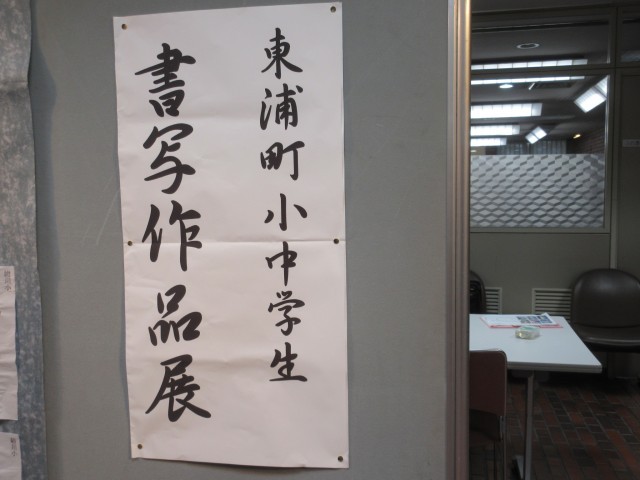 東浦町小中学生
書写作品展